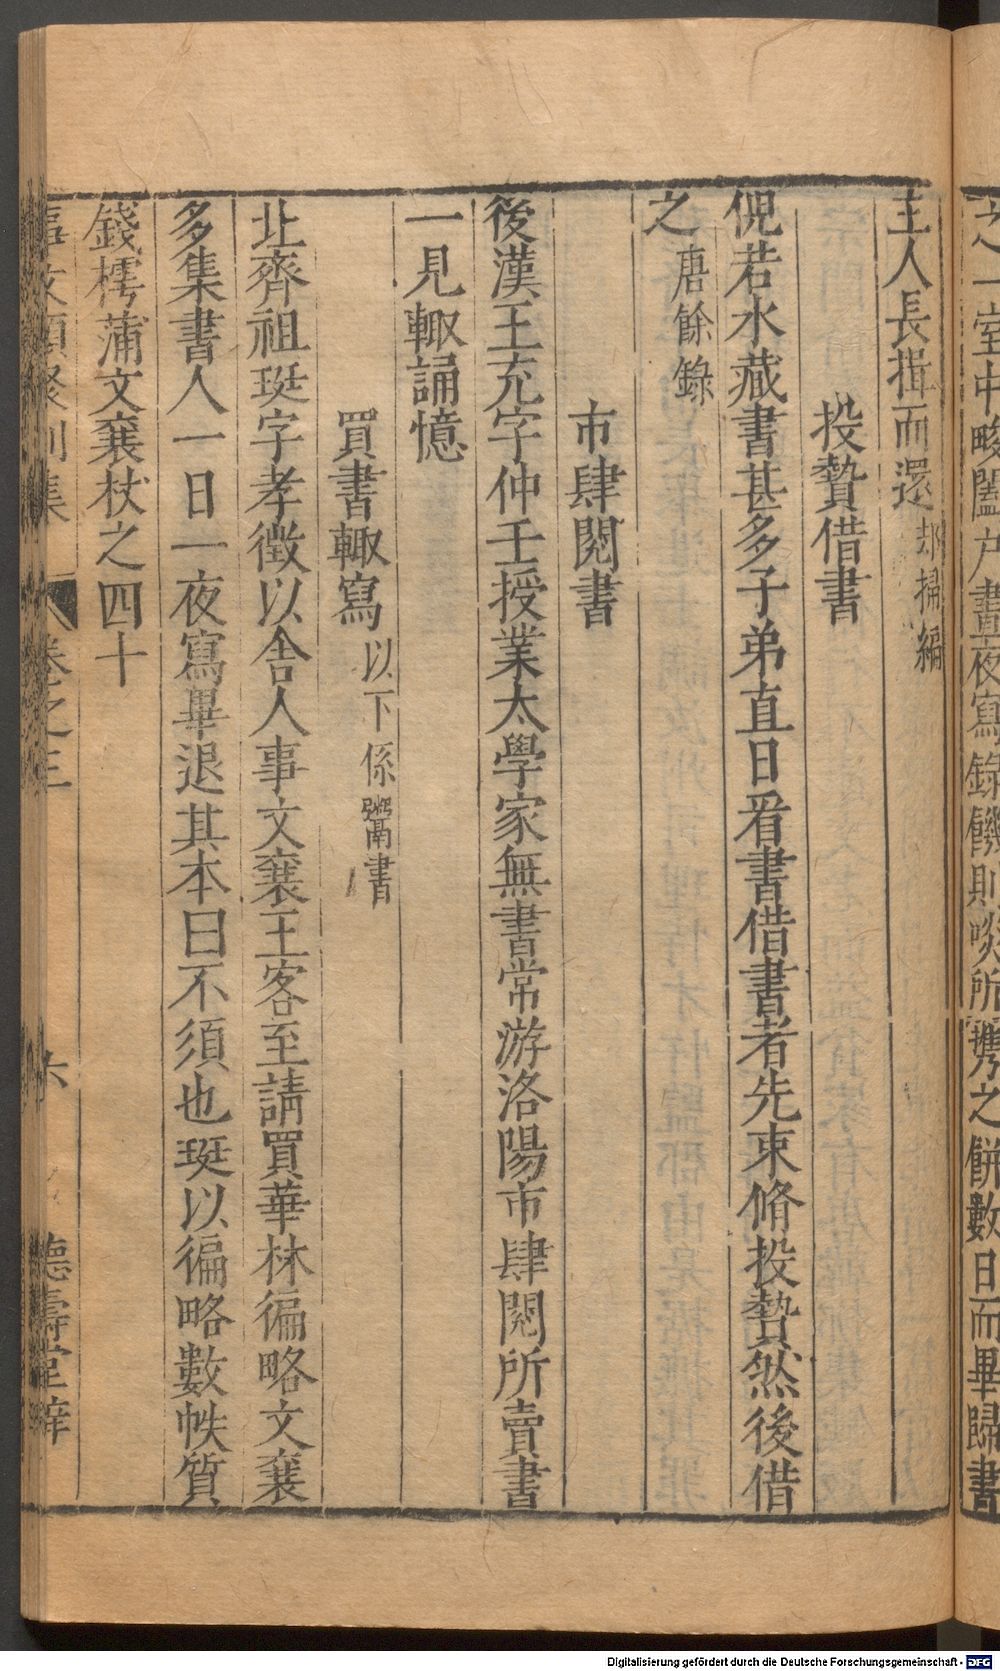 之一室中畯闔戶晝夜寫錄饑則啖所攜之餅數日而畢歸書
主人長揖而還却掃編
投贄借書
倪若水藏書甚多子弟直日看書借書者先束脩投贄然後借
之唐餘錄
市肆閱書
後漢王充字仲壬授業太學家無書常游洛陽市肆閱所賣書
一見輙誦憶
買書輙寫以下係鬻書
北齊祖珽字孝徵以舍人事文襄王客至請買華林徧略文襄
多集書人一日一夜寫畢退其本曰不須也珽以徧略數帙質
錢樗蒲文襄杖之四十
事文類聚別集 卷之三 六 德壽堂梓
Digitalisierung gefördert durch die Deutsche Forschungsgemeinschaft - DFG